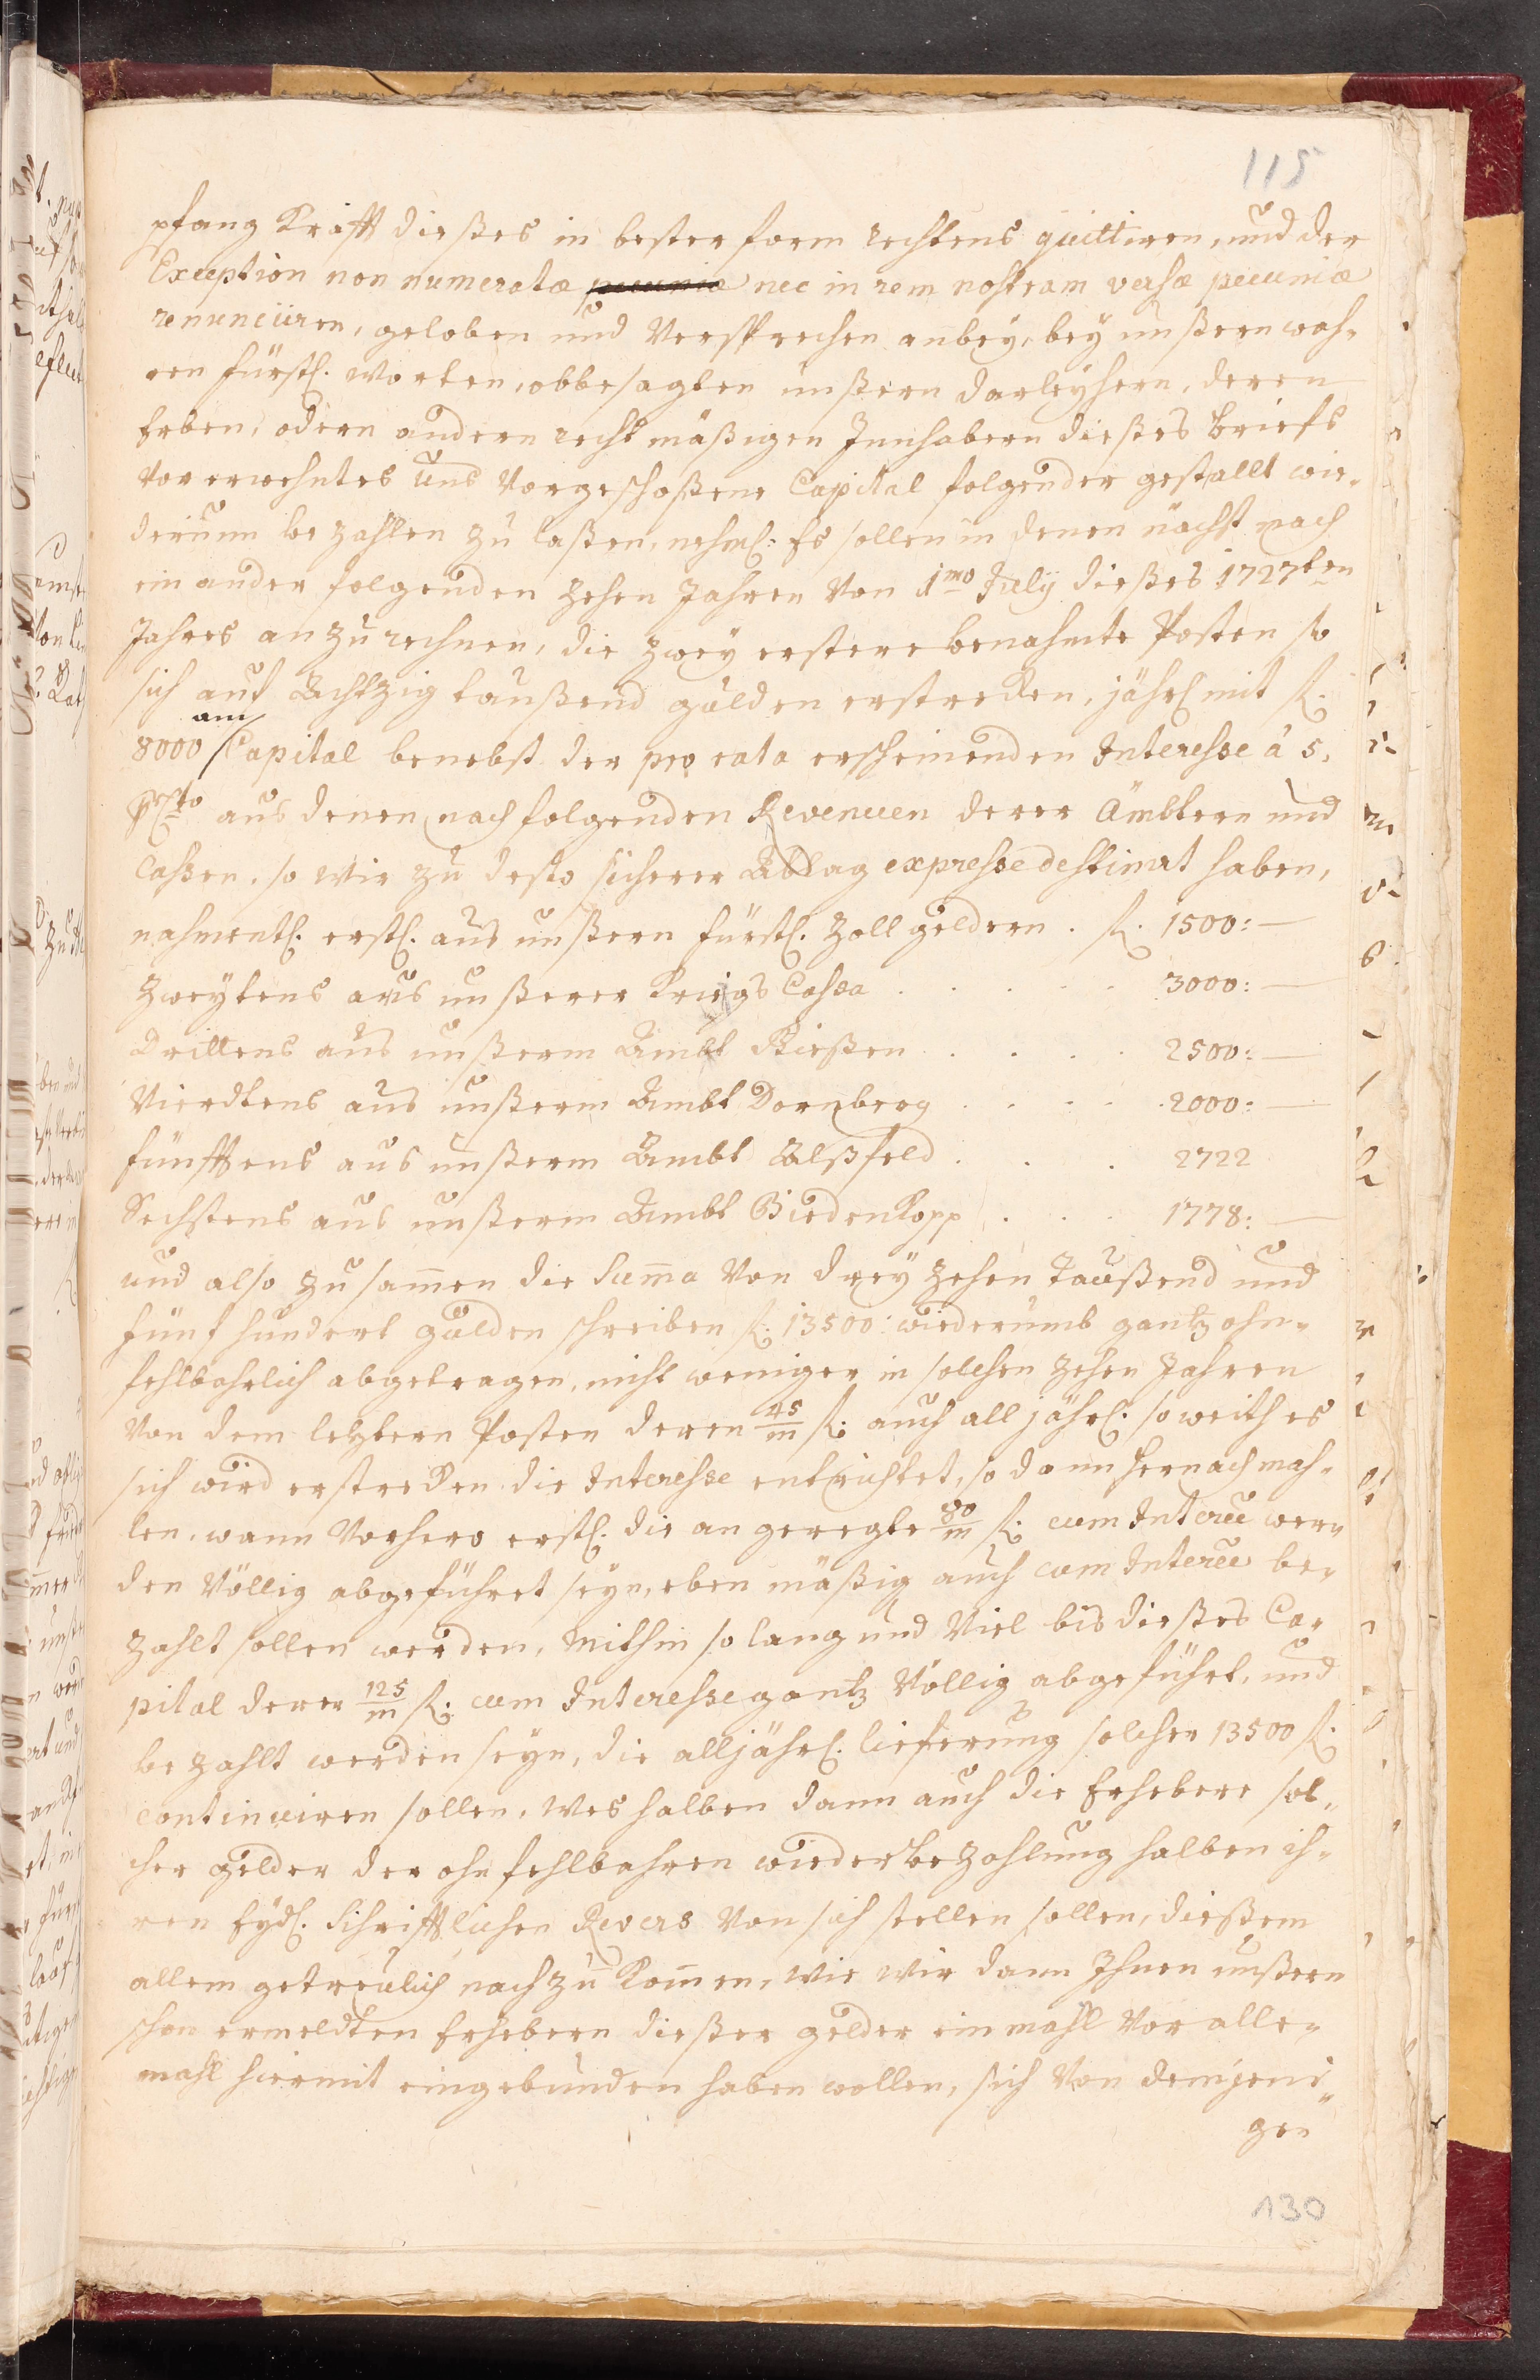 115
pfang Krafft dießes in bester form rechtens quittiren, und der
Exception non numeratæ pecuniæ nec in rem nostram versæ pecuniæ
renunciiren, geloben und Versprechen anbey, bey unßern wah-
ren fürstl. Worten, obbesagten unßern darleyhern, deren
Erben, odern andern rechtmäßigen Innhabern dießes Briefs
Vorerwehntes Uns Vorgeschoßene Capital folgender gestallt wie-
derumm bezahlen zu laßen, nehml: Es sollen in denen nächst nach
ein ander folgenden zehen Jahren Von 1mo July dießes 1727ten
Jahres anzurechnen, die zwey erstere benahmte Posten so
sich auf Achtzig taußend gulden erstrecken, jährl mit fl.
am
8000 Capital benebst der pro rata erscheinenden Interesse à 5,
prCto aus denen nachfolgenden Revenuen derer Ämbtern und
Cassen, so wir zu desto sicherer Ablag expresse destinirt haben,
nahmentl. erstl. aus unßern fürstl. Zoll geldern . fl. 1500: —
Zweytens aus unßerer Kriegs Cassa . . . . . 3000: —
Drittens aus unßerm Ambt Gießen . . . . 2500: —
Vierdtens aus unßerm Ambt Dornberg . . . . 2000: —
fünfftens aus unßerm Ambt Alßfeld . . . 2722
Sechstens aus unßerm Ambt Biedenkopp . . . 1778: —
und also zusam̄en die Sum̄a Von dreyzehen taußend und
fünf hundert gulden schreiben fl. 13500: wiederumb gantz ohn-
fehlbahrlich abgetragen, nicht weniger in solchen zehen Jahren
Von dem letztern Posten deren 45/m fl. auch all jährl. so weith es
sich wird erstrecken die Interesse entrichtet, so dann hernachmah-
len, wann Vorhero erstl. die angeregte 80/m fl. cum Interee wer-
den Völlig abgeführet seyn, eben mäßig auch cum Interee be-
zahlt sollen werden, Mithin so lang und Viel bis dießes Ca-
pital derer 125/m fl. cum Interesse gantz Völlig abgeführt, und
bezahlt werden seyn, die alljährl. lieferung solcher 13500 fl.
continuiren sollen, Weshalben dann auch die Erhebere sol-
cher gelder der ohnfehlbahren wiederbezahlung halben ih-
ren Eydl. Schrifftlichen Revers Von sich stellen sollen, dießem
allem getreulich nachzukom̄en, Wie wir dann Ihnen unßern
schon ermeldten Erhebern dießer gelder einmahl Vor alle-
mahl hiermit eingebunden haben wollen, sich Von demjeni-
gen
130